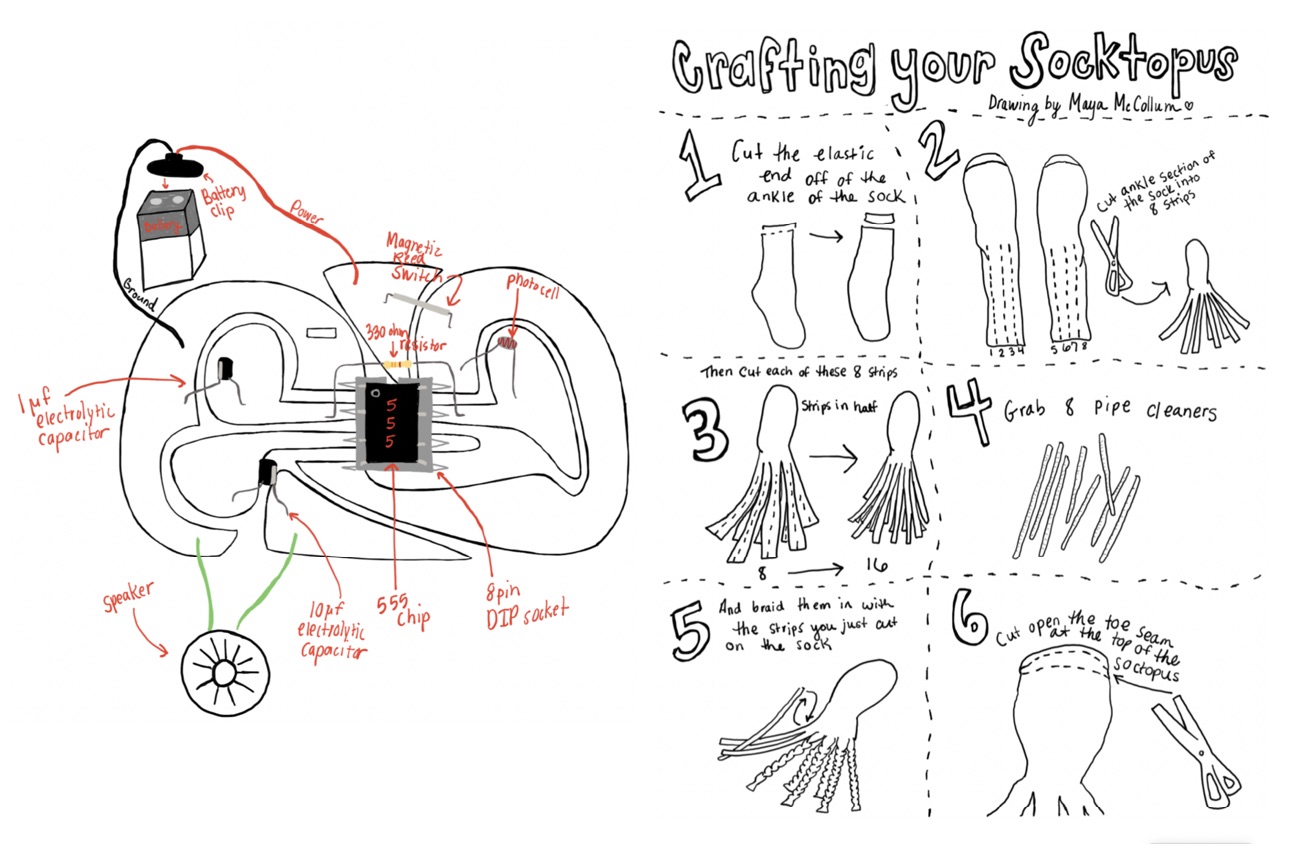 Battery
clip
battery
Power
Ground
Magnetic
Reed
Switch
photocell
330 ohm
resistor
1µf
electrolytic
capacitor
5
5
5
Speaker
10µf
electrolytic
Capacitor
555
chip
8pin
DIP socket
Crafting your Socktopus
Drawing by Maya McCollum
1
Cut the elastic
end off of the
ankle of the sock
2
Cut ankle section of
the sock into
8 strips
1 2 3 4
5 6 7 8
3
Then cut each of these 8 strips
Strips in half
8
16
4
Grab 8 pipe cleaners
5
And braid them in with
the strips you just cut
on the sock
6
Cut open the toe seam
at the top of the
soctopus